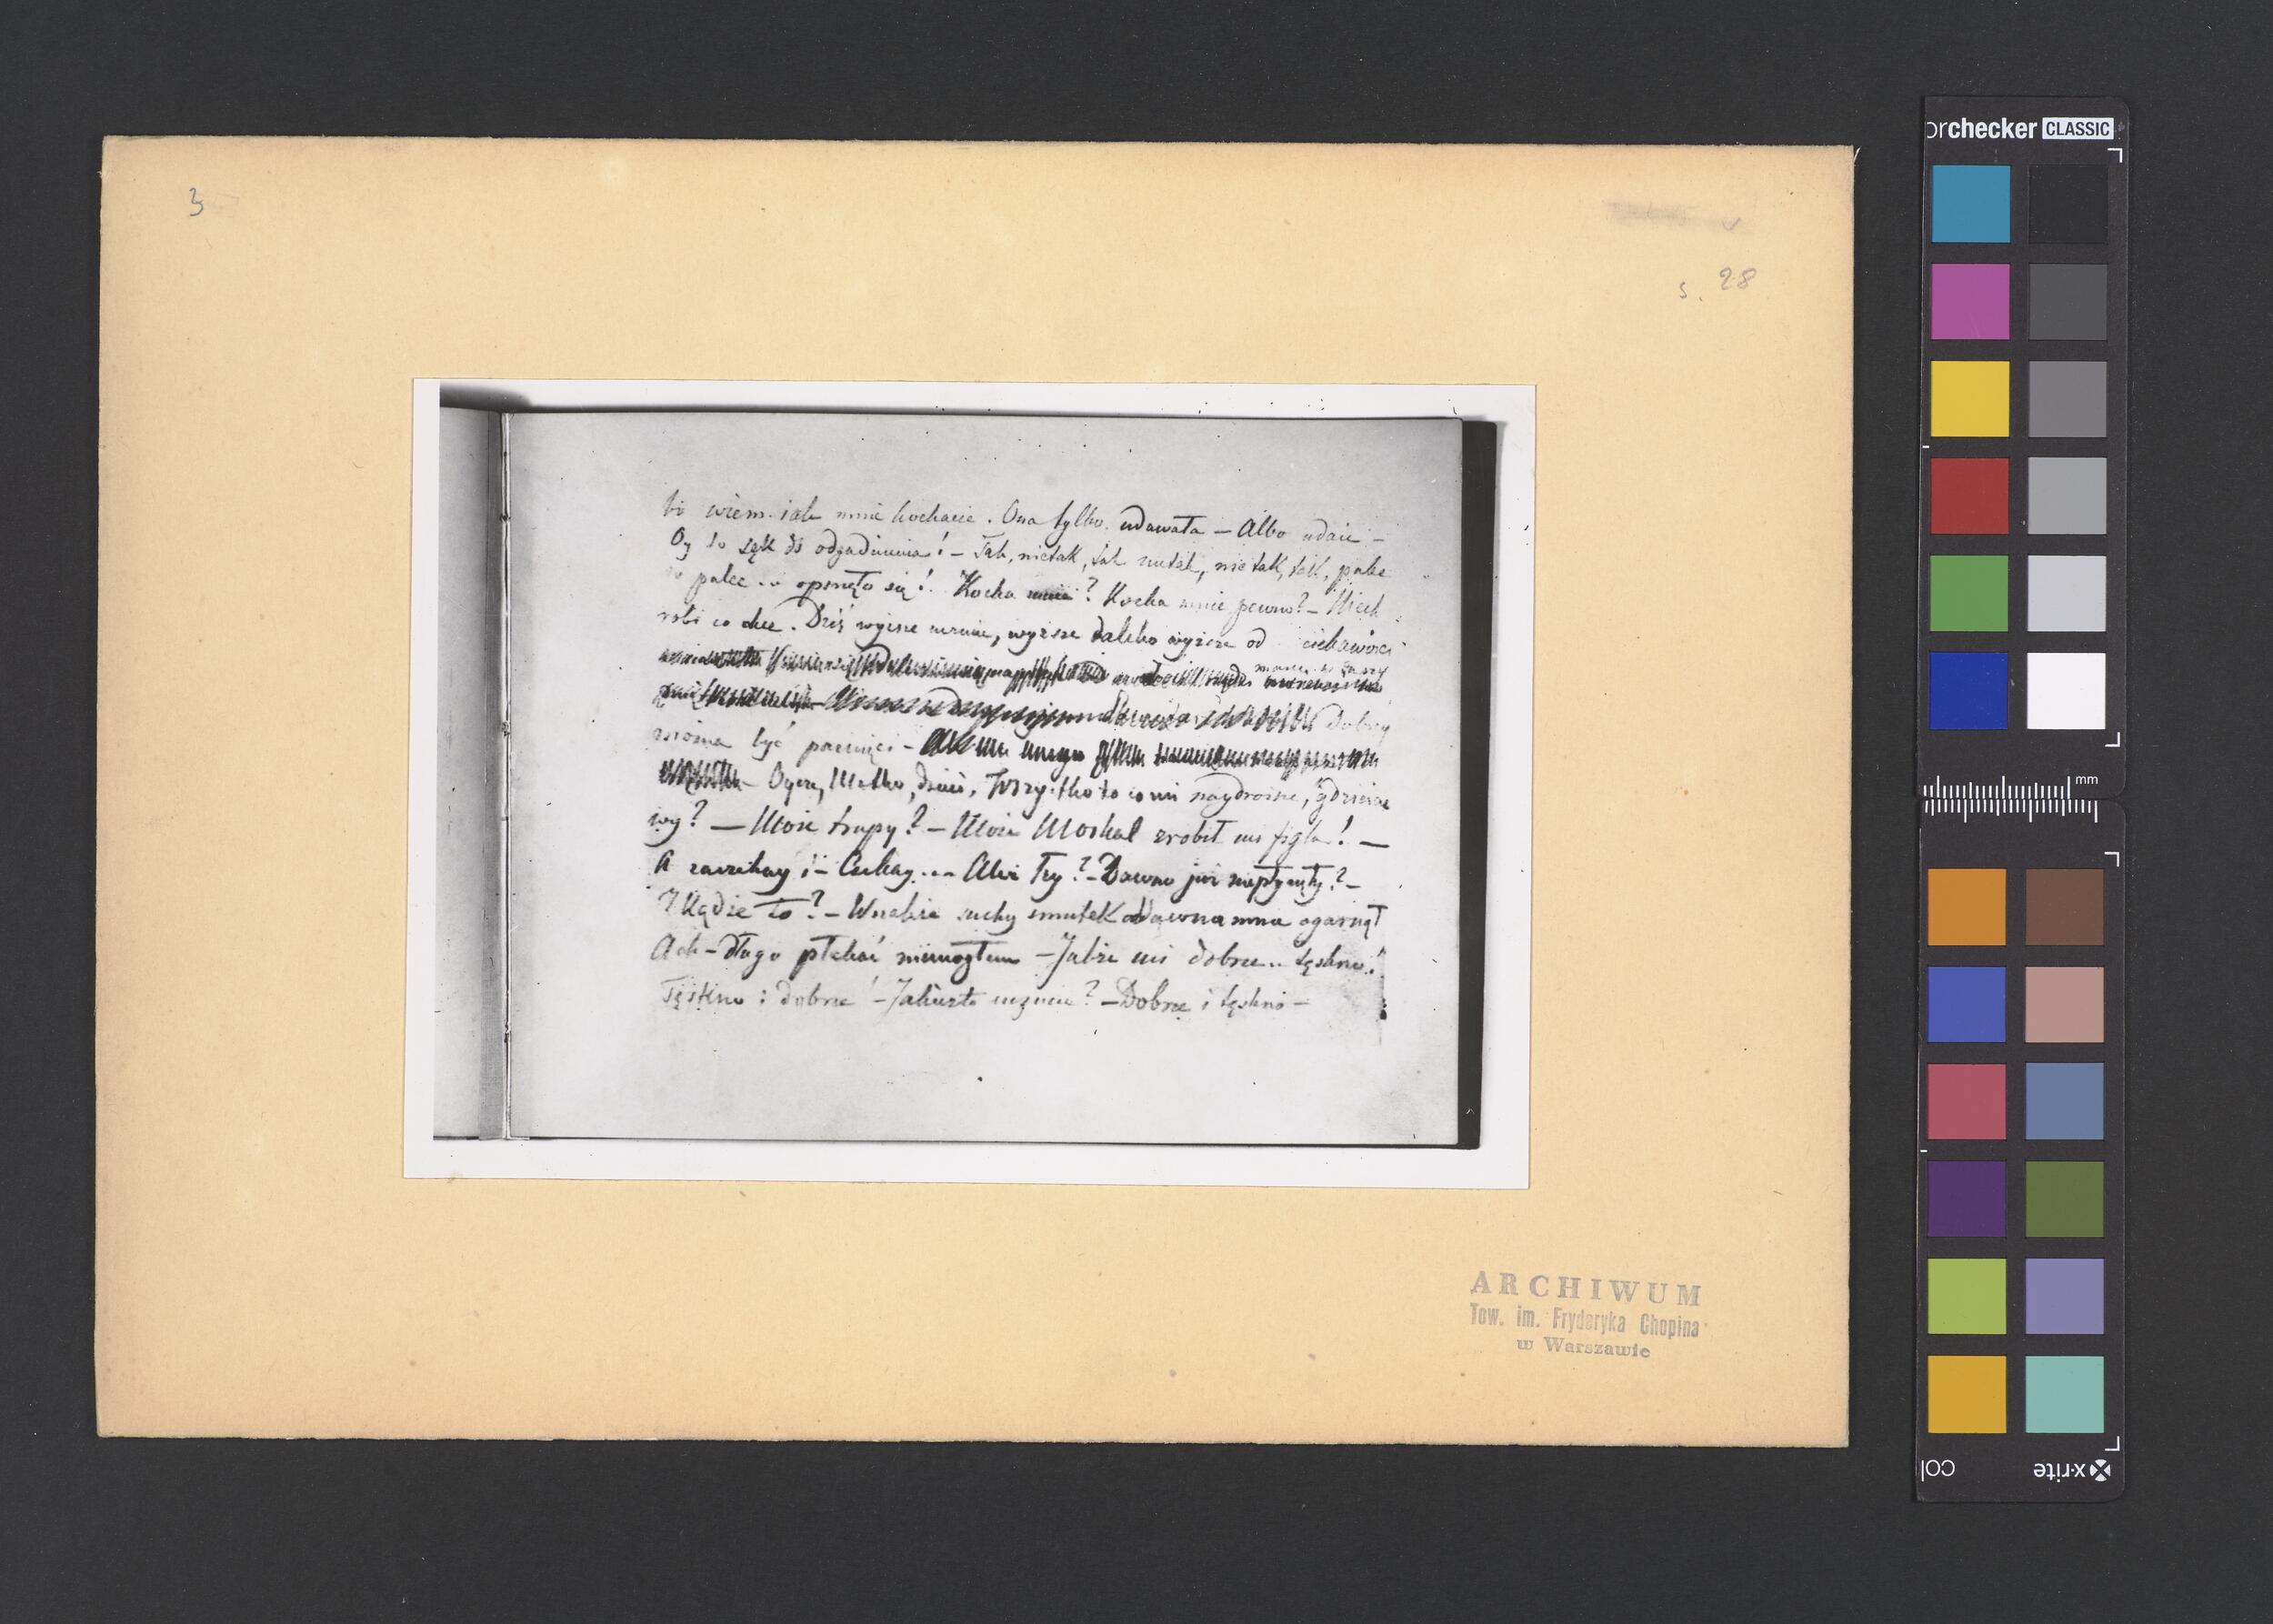 3
s. 28
bo wiem iak mnie kochacie. Ona tylko udawała – Albo udaie –
Oy to sęk do odgadnienia! – Tak, nietak, tak nietak, nie tak, tak, palec
w palec .. opsnęło się! Kocha mnie? Kocha mnie pewno? – Niech
robi co chce. Dziś wyższe uczucie, wyższe daleko wyższe od ciekawości
w duszy
dobrey
można być pamięci –
– Oycze, Matko, dzieci, Wszystko to co mi naydroższe, gdzieście
wy? – Może trupy? – Może Moskal zrobił mi figla! –
A zaczekay i – Czekay... – Ale Łzy? – Dawno już niepłynęły? –
Zkądże to? – Wszakże suchy smutek oddawna mnie ogarnął
Ach – długo płakać niemogłem – Jakże mi dobrze .. tęskno!
Tęskno i dobrze! – Jakieżto uczucie? – Dobrze i tęskno –
ARCHIWUM
Tow. im. Fryderyka Chopina
w Warszawie
orchecker CLASSIC
mm
x-rite
col